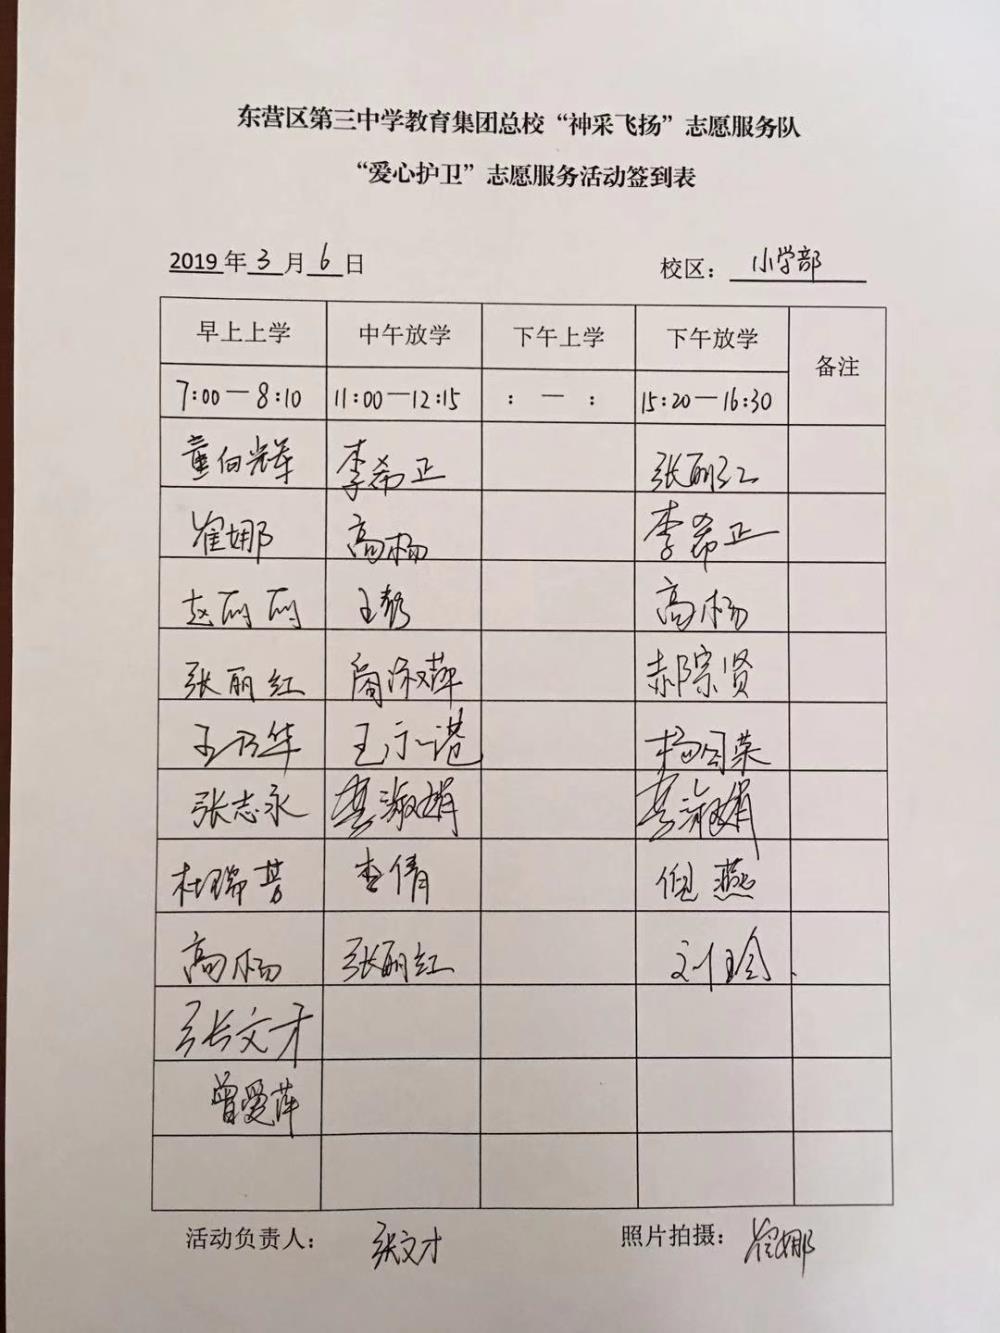 东营区第三中学教育集团总校“神采飞扬”志愿服务队
“爱心护卫”志愿服务活动签到表
2019年3月6日 校区：小学部
早上上学 中午放学 下午上学 下午放学 备注
7:00—8:10 11:00—12:15 : — : 15:20—16:30
董向辉 李希正 张丽红
崔娜 高杨 李希正
赵丽丽 王 高杨
张丽红 商淑萍 郝宗贤
王乃华 王 杨国荣
张志永 淑娟 淑娟
杜瑞芳 李倩 倪燕
高杨 张丽红 刘玲
张文才
曾爱萍
活动负责人：张文才 照片拍摄：崔娜